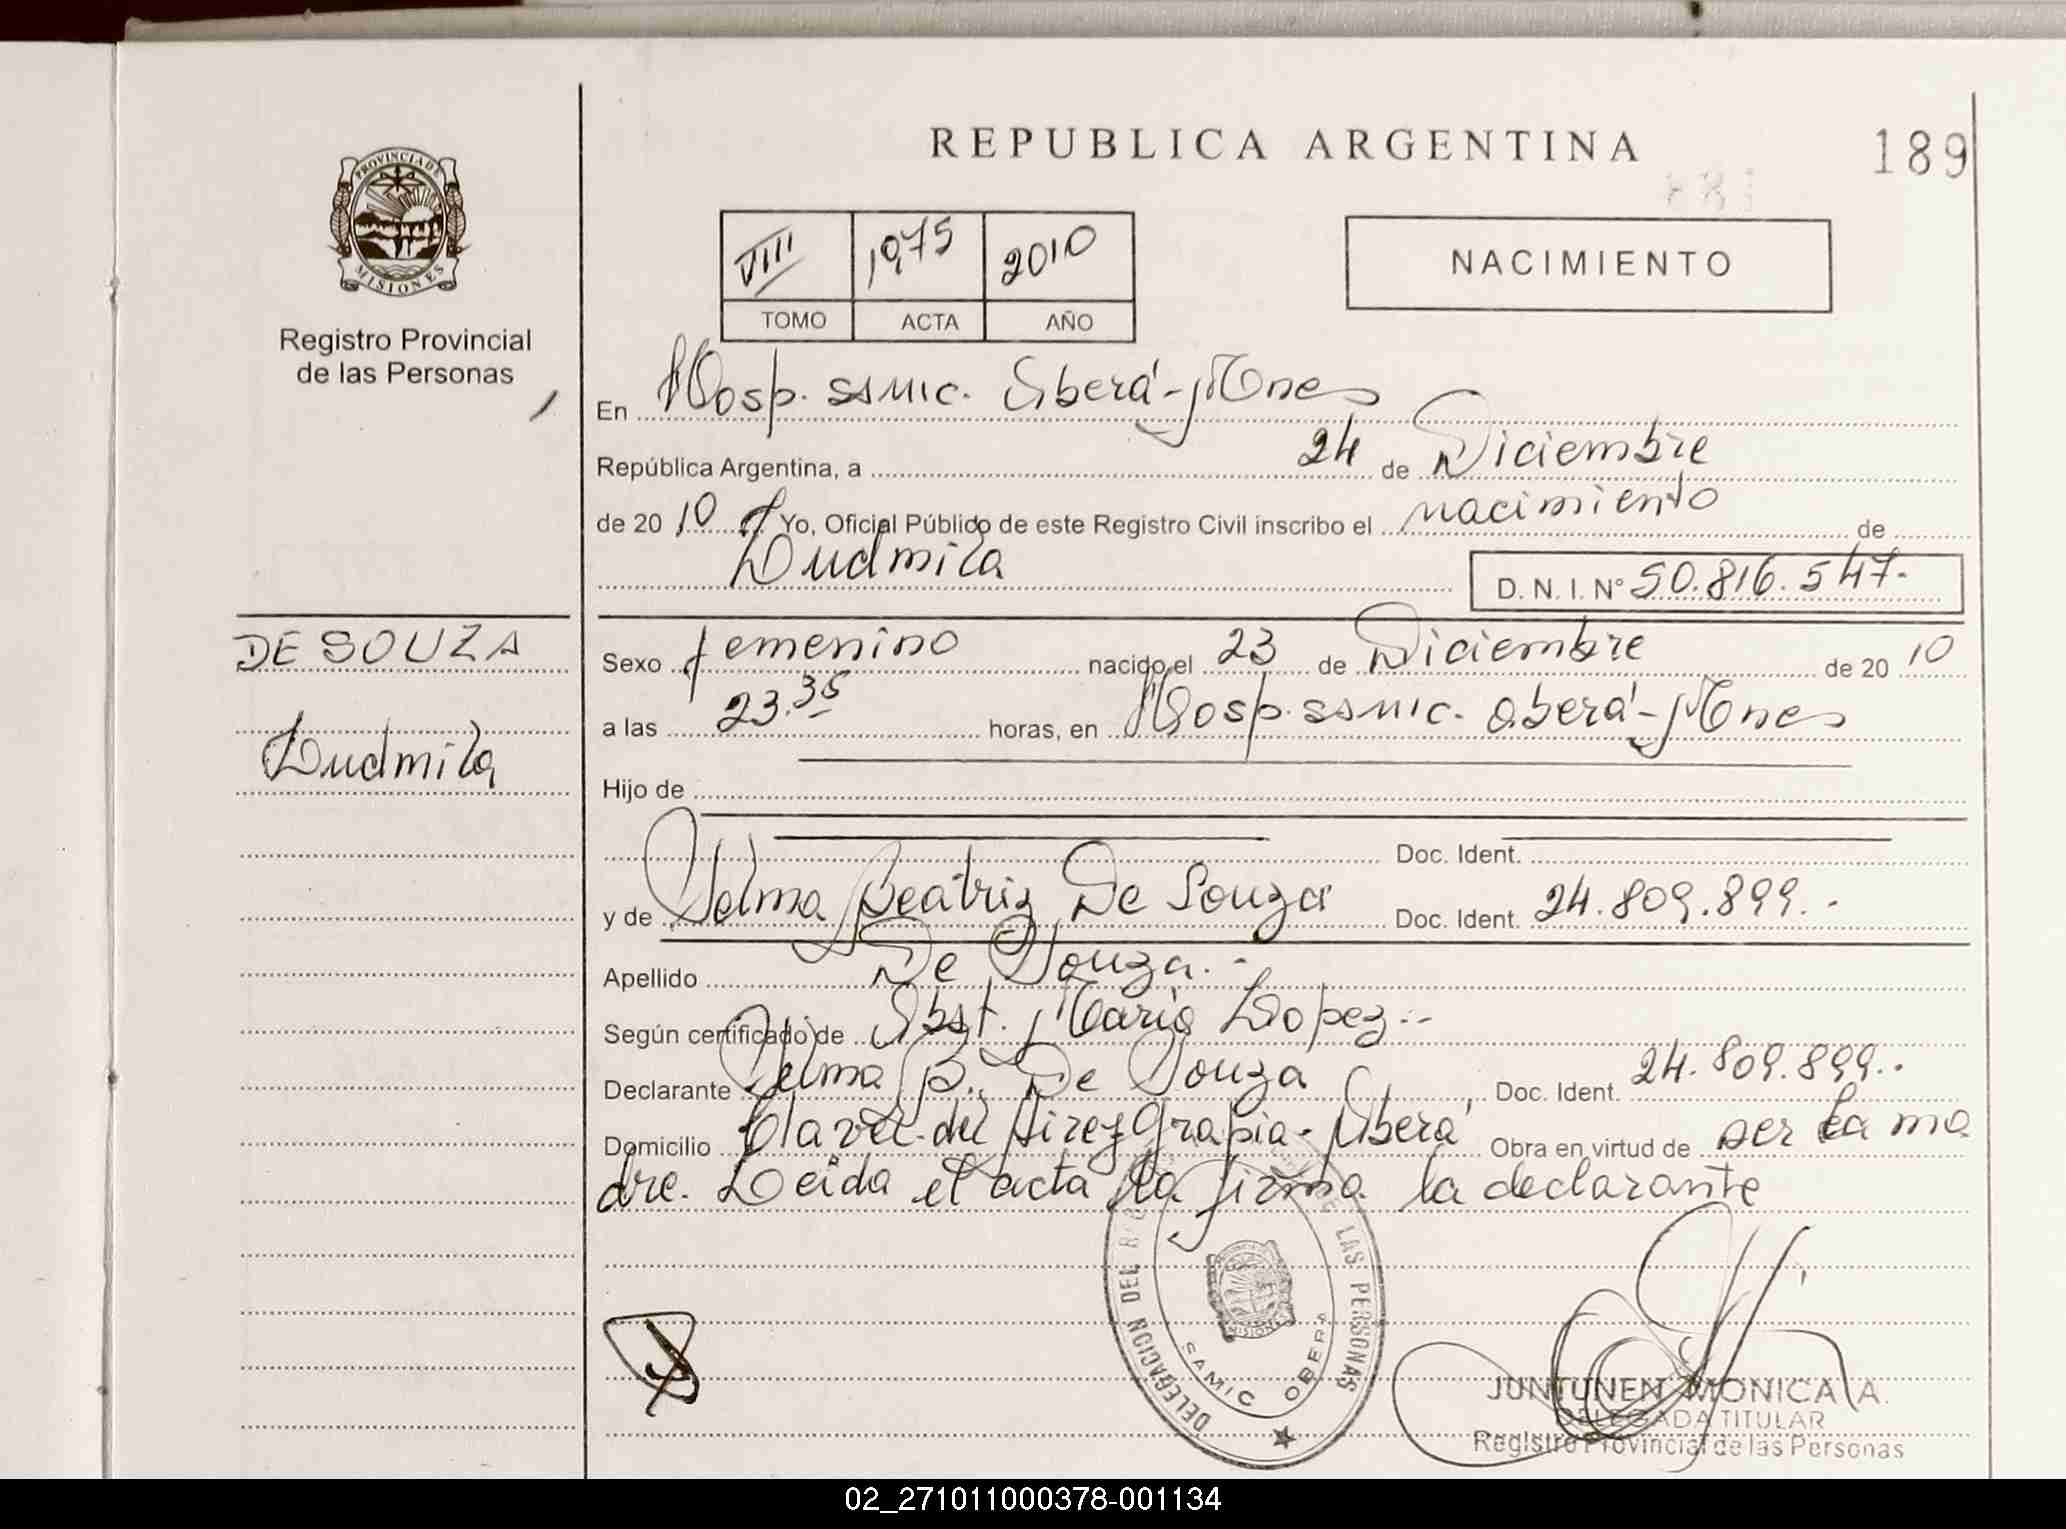 REPUBLICA ARGENTINA
189
PROVINCIA DE
MISIONES
Registro Provincial
de las Personas
VIII 1975 2010
TOMO ACTA AÑO
NACIMIENTO
En Hosp. SAMIC. Oberá-Mnes
República Argentina, a 24 de Diciembre
de 20 10 Yo, Oficial Público de este Registro Civil inscribo el nacimiento de
Ludmila
D. N. I. N° 50.816.547.-
DE SOUZA
Ludmila
Sexo femenino nacido el 23 de Diciembre de 20 10
a las 23.35 horas, en Hosp. SAMIC. Oberá-Mnes
Hijo de
Doc. Ident.
y de Telma Beatriz De Souza Doc. Ident. 24.809.899.-
Apellido De Souza.-
Según certificado de Obst. Maria Lopez.-
Declarante Telma B. De Souza Doc. Ident. 24.809.899..
Domicilio Clavel del Aire y Grapia-Oberá Obra en virtud de ser la ma
dre. Leida el acta la firma la declarante
DELEGACION DEL LAS PERSONAS
MISIONES
SAMIC OBERA
JUNTUNEN MONICA A.
DELEGADA TITULAR
Registro Provincial de las Personas
02_271011000378-001134